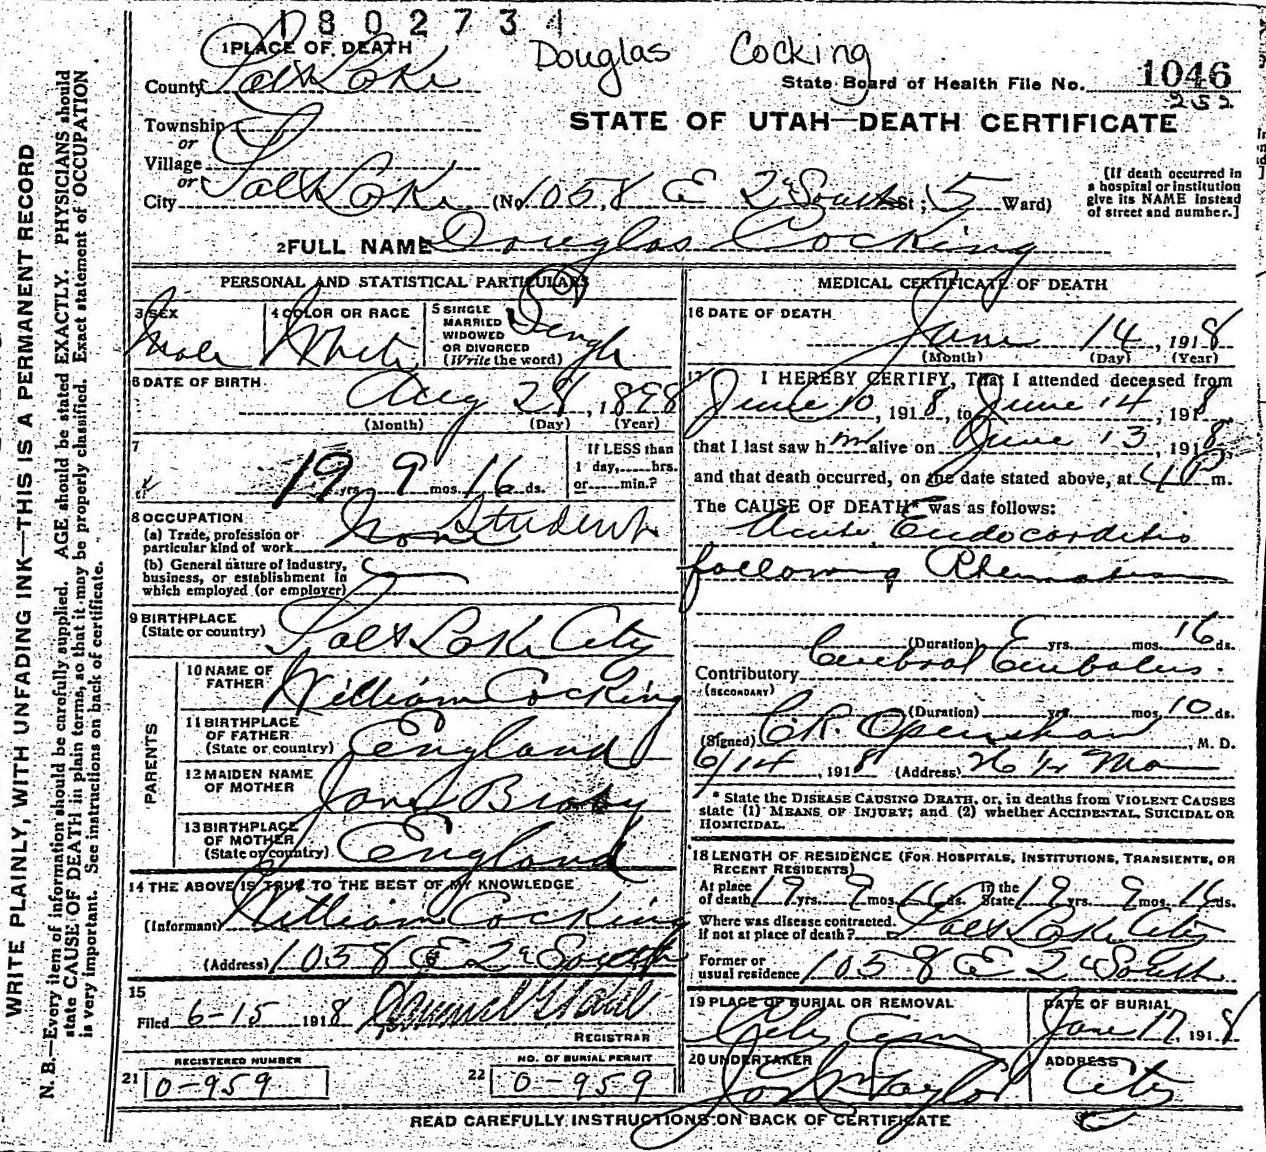 1802734
Douglas Cocking
1 PLACE OF DEATH
County Salt Lake
State Board of Health File No. 1046
252
Township
or
Village
or
STATE OF UTAH—DEATH CERTIFICATE
City Salt Lake (No. 1058 E 2d South St; 5 Ward)
[If death occurred in a hospital or institution give its NAME instead of street and number.]
2 FULL NAME Douglas Cocking
PERSONAL AND STATISTICAL PARTICULARS
3 SEX Male
4 COLOR OR RACE White
5 SINGLE MARRIED WIDOWED OR DIVORCED (Write the word) Single
6 DATE OF BIRTH Aug 28, 1898
(Month) (Day) (Year)
7 19 yrs. 9 mos. 16 ds.
If LESS than 1 day, hrs. or min.?
8 OCCUPATION
(a) Trade, profession or particular kind of work None Student
(b) General nature of industry, business, or establishment in which employed (or employer)
9 BIRTHPLACE
(State or country) Salt Lake City
PARENTS
10 NAME OF FATHER William Cocking
11 BIRTHPLACE OF FATHER (State or country) England
12 MAIDEN NAME OF MOTHER Jane
13 BIRTHPLACE OF MOTHER (State or country) England
14 THE ABOVE IS TRUE TO THE BEST OF MY KNOWLEDGE
(Informant) William Cocking
(Address) 1058 E 2d South
15
Filed 6-15 1918
REGISTRAR
REGISTERED NUMBER
21 0-959
NO. OF BURIAL PERMIT
22 0-959
MEDICAL CERTIFICATE OF DEATH
16 DATE OF DEATH June 14, 1918
(Month) (Day) (Year)
17 I HEREBY CERTIFY, That I attended deceased from
June 10, 1918, to June 14, 1918,
that I last saw him alive on June 13, 1918,
and that death occurred, on the date stated above, at 4 P m.
The CAUSE OF DEATH* was as follows:
Acute Endocarditis
following Rheumatism
(Duration) yrs. mos. 16 ds.
Contributory Cerebral Embolus
(SECONDARY)
(Duration) yrs. mos. 10 ds.
(Signed) C.R. Openshaw, M. D.
6/14, 1918 (Address)
* State the DISEASE CAUSING DEATH, or, in deaths from VIOLENT CAUSES state (1) MEANS OF INJURY; and (2) whether ACCIDENTAL, SUICIDAL OR HOMICIDAL.
18 LENGTH OF RESIDENCE (FOR HOSPITALS, INSTITUTIONS, TRANSIENTS, OR RECENT RESIDENTS)
At place of death 19 yrs. 9 mos. 16 ds. In the State 19 yrs. 9 mos. 16 ds.
Where was disease contracted, If not at place of death? Salt Lake City
Former or usual residence 1058 E 2d South
19 PLACE OF BURIAL OR REMOVAL City Cem
DATE OF BURIAL June 17, 1918
20 UNDERTAKER Taylor
ADDRESS City
READ CAREFULLY INSTRUCTIONS ON BACK OF CERTIFICATE
WRITE PLAINLY, WITH UNFADING INK—THIS IS A PERMANENT RECORD
N. B.—Every item of information should be carefully supplied. AGE should be stated EXACTLY. PHYSICIANS should
state CAUSE OF DEATH in plain terms, so that it may be properly classified. Exact statement of OCCUPATION
is very important. See instructions on back of certificate.